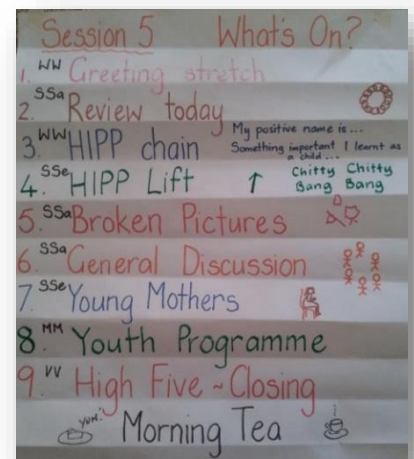 Session 5 What's On?
1. WW Greeting stretch
2. SSa Review today
3. WW HIPP chain My positive name is...
Something important I learnt as
a child...
4. SSe HIPP Lift ↑ Chitty Chitty
Bang Bang
5. SSa Broken Pictures
6. SSa General Discussion
7. SSe Young Mothers
8. MM Youth Programme
9. VV High Five ~ Closing
YUM! Morning Tea